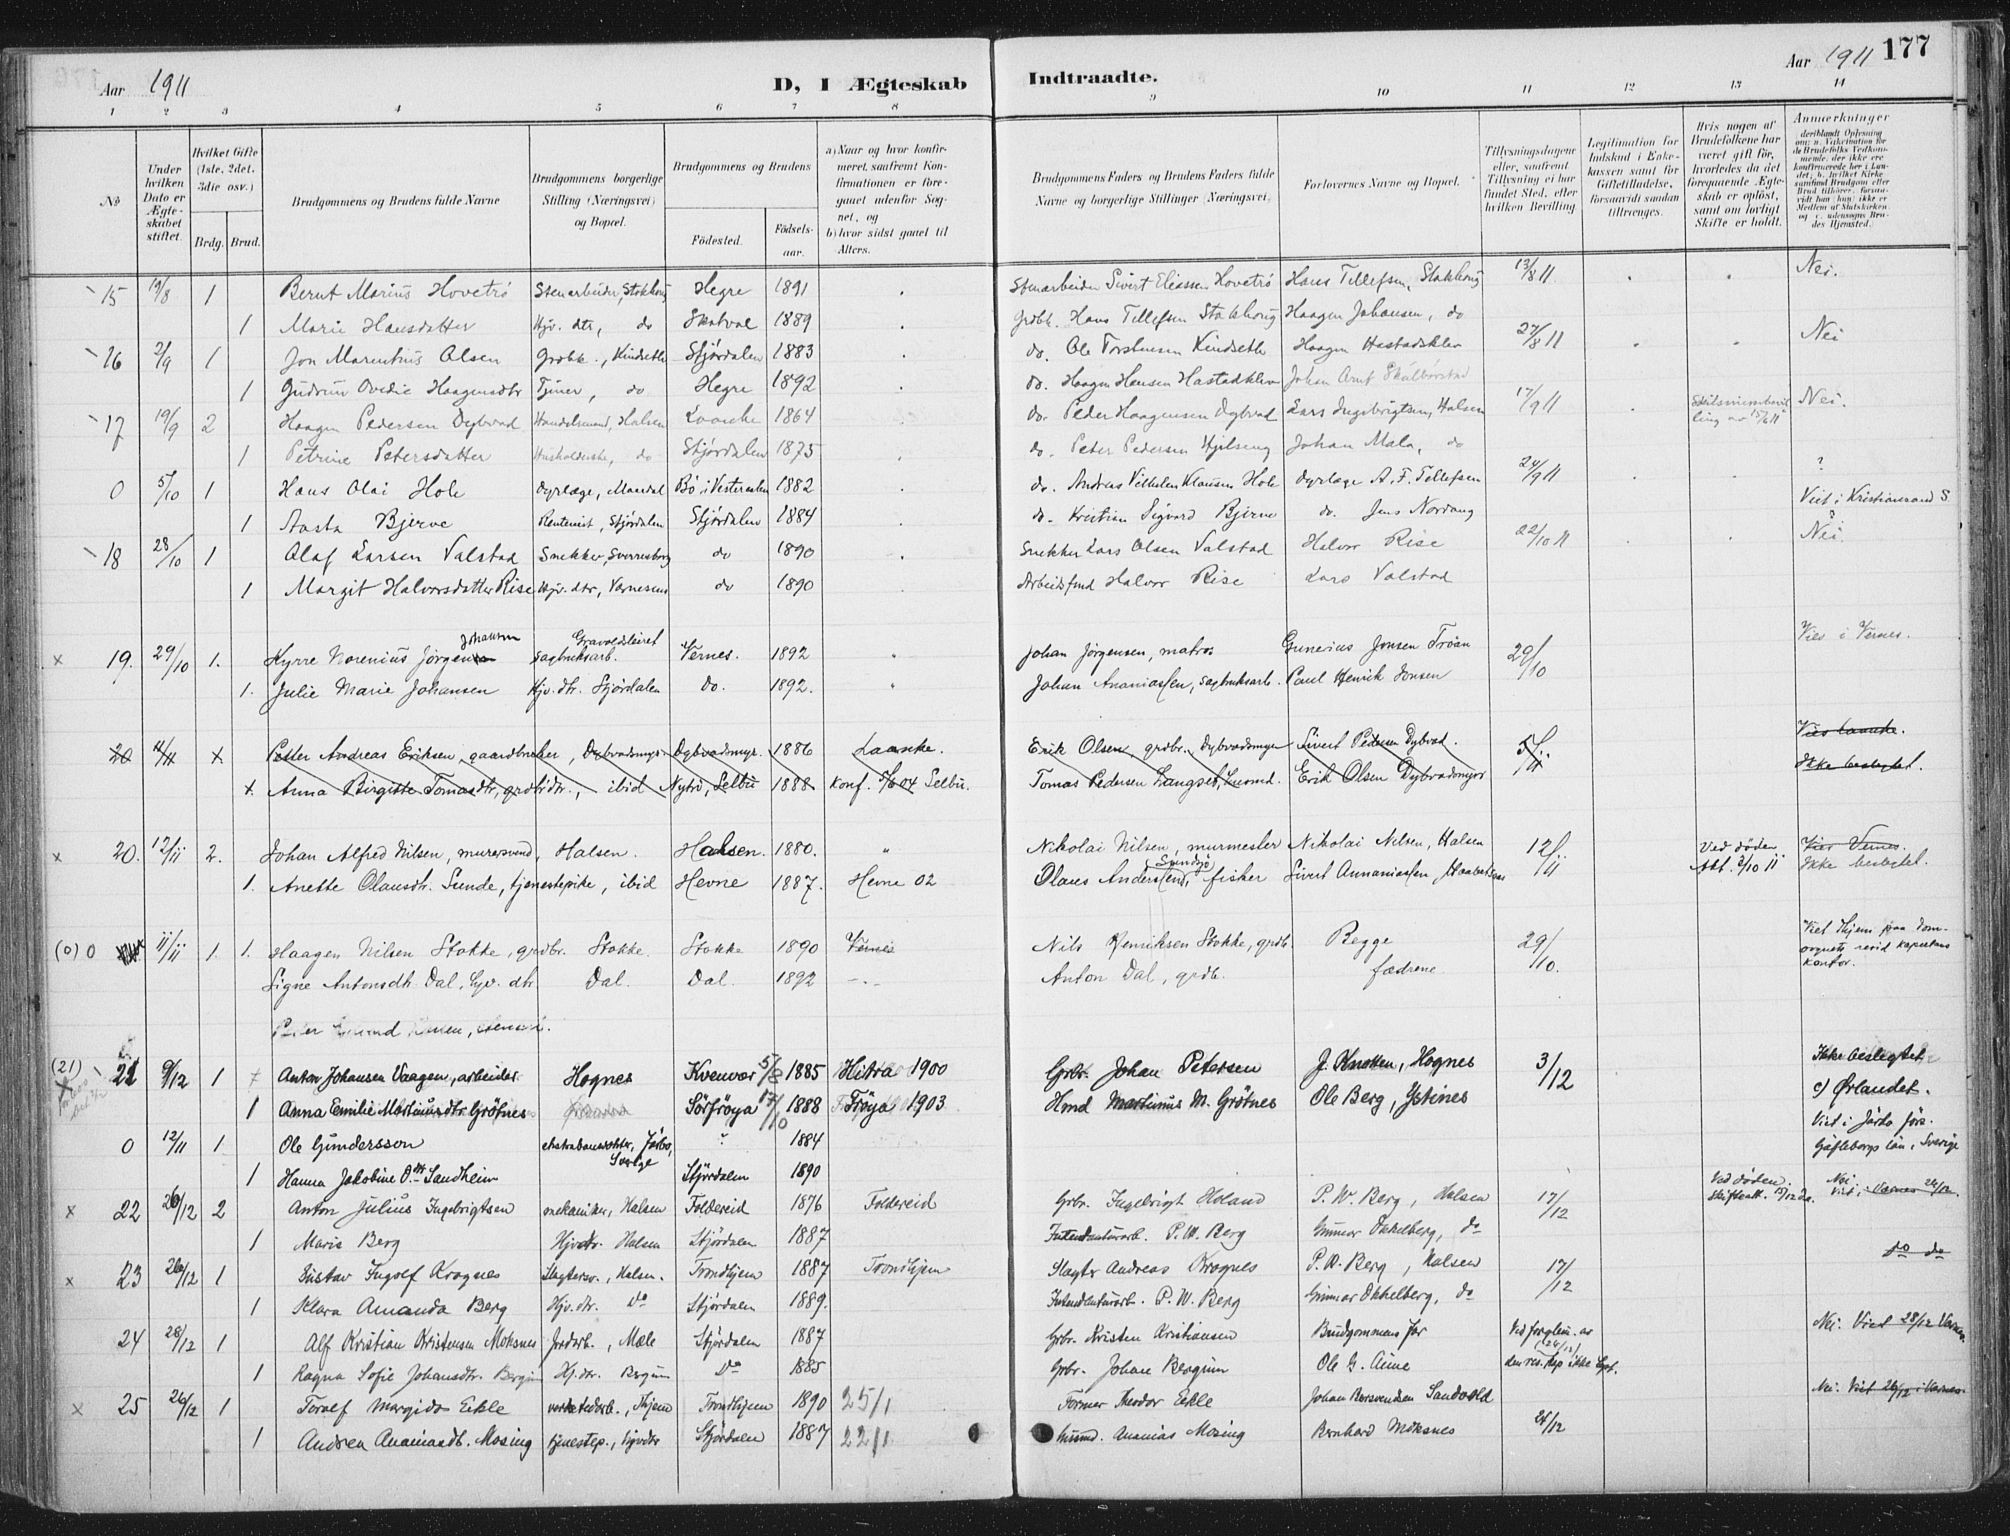 Aar 1911
D, I Ægteskab Indtraadte.
Aar 1911 177
1 2 3 4 5 6 7 8 9 10 11 12 13 14
No
Under hvilken Dato er Ægteskabet stiftet.
Hvilket Gifte (1ste, 2det, 3die osv.)
Brdg. Brud.
Brudgommens og Brudens fulde Navne
Brudgommens borgerlige Stilling (Næringsvei) og Bopæl.
Brudgommens og Brudens
Födested. Födselsaar.
a) Naar og hvor konfirmeret, saafremt Konfirmationen er foregaaet udenfor Sognet, og
b) hvor sidst gaaet til Alters.
Brudgommens Faders og Brudens Faders fulde Navne og borgerlige Stillinger (Næringsvei).
Forlovernes Navne og Bopæl.
Tillysningsdagene eller, saafremt Tillysning ei har fundet Sted, efter hvilken Bevilling
Legitimation for Indskud i Enkekassen samt for Giftetilladelse, forsaavidt saadan tiltrænges.
Hvis nogen af Brudefolkene har været gift før, hvorledes da det foregaaende Ægteskab er opløst, samt om lovligt Skifte er holdt.
Anmerkninger
15 19/8 1 Bernt Marius Hovetrö Stenarbeider, Stokhaug Hegre 1891 Stenarbeider Sivert Eliassen Hovetrö Hans Tillefsen, Stokhaug 13/8 11 Nei.
1 Marie Hansdatter Hjv. dtr, do Skatval 1889 Grdbr. Hans Tillefsen Stokhaug Haagen Johansen, do
16 2/9 1 Jon Marentius Olsen Grdbr., Kindseth Stjørdalen 1883 do. Ole Torstensen Kindseth Haagen Hastadklev 27/8 11 Nei
1 Gudrun Ovedie Haagensdtr Tjener, do Hegre 1892 do. Haagen Hansen Hastadklev Johan Arnt Skulbørstad
17 19/9 2 Haagen Pedersen Dybvad Handelsmand, Halsen Laanke 1864 do. Peder Haagensen Dybvad Lars Ingebrigtsen, Halsen 17/9 11 Skilsmissebevilling av 15/6 11 Nei.
1 Petrine Petersdatter Husholderske, do Stjørdalen 1875 do. Peter Pedersen Hjelseng Johan Mala, do
0 5/10 1 Hans Olai Hole Dyrlæge, Mandal Bö i Vesteraalen 1882 do. Andreas Vilhelm Klausen Hole Dyrlæge A. F. Tellefsen 24/9 11 ?
1 Aasta Bjerve Rentenist, Stjördalen Stjördalen 1884 do. Kristian Sigvard Bjerve do. Jens Nordang Viet i Kristiansand S.
18 28/10 1 Olaf Larsen Valstad Snekker, Sverresborg do 1890 Snekker Lars Olsen Valstad Halvor Rise 22/10 11 Nei.
1 Margit Halvorsdatter Rise Hjv. dtr, Vernesens do 1890 Arbeidsfmd Halvor Rise Lars Valstad
x 19. 29/10 1. Hyrre Norenius Jørgen Johansen Gravoldsleiret sagbruksarb. Vernes. 1892 " Johan Jørgensen, matros Gunerius Jonsen Tröan 29/10 Viet i Vernes.
1. Julie Marie Johansen Hjv. dtr. Stjørdalen do. 1892. " Johan Ananiassen, sagbruksarb. Paul Henrik Jonsen
20 x Petter Andreas Eriksen, gaardbruker, Dybvadsmyr. Dybvadsmyr. 1886 Laanke. Erik Olsen, grdbr. Dybvadsmyr Sivert Pedersen Dybvad. 5/11 Viet Laanke.
x. Anna Birgitte Tomasdtr, grdbrdtr., ibid Nytrö, Selbu 1888 Konf. 04 Selbu. Tomas Pedersen Langset, Erik Olsen Dybvadsmyr Ikke beslegtet.
x 20. 12/11 2. Johan Alfred Nilsen, murersvend, Halsen. Halsen. 1880. " Nikolai Nilsen, murmester Nikolai Nilsen, Halsen 12/11 Ved døden Att. 2/10 11 Viet Vernes.
1. Anette Olausdtr. Sunde, tjenestepike, ibid Hevne 1887. Hevne 02 Olaus Anderssen, fisker Sivert Annaniassen Ikke beslegtet.
(0) 0 11/11 1. 1. Haagen Nilsen Stokke, grdbr. Stokke. Stokke 1890 Vernes Nils Henriksen Stokke, grdb. Begge 29/10. Viet Thjem paa Domsognets resid kapellans kontor.
Signe Antonsdtr. Dal, hjv. dtr. Dal. Dal. 1892 Anton Dal, grdb. fædrene
(21) 21 9/12 1 Anton Johansen Vaagen, arbeider. Hognes Kvenvær 5/8 1885 Hitra 1900 Grbr. Johan Petersen J. Knotten, Hognes 3/12 Ikke beslegtet.
1 Anna Emilie Martinusdtr Grötnes Sörfröya 17/10 1888 Fröya 1903. Hmd Martinus M. Grötnes Ole Berg, Ystines c) Ørlandet.
0 12/11 1 Ole Gundersson ekstrabanevokter, Järbo, Sverige ? 1884 Viet i Järbo förs. Gäfleborgs län, Sverige
1 Hanna Jakobine O.dtr Sandheim Stjørdalen 1890
x 22 26/12 2 Anton Julius Ingebrigtsen mekaniker, Halsen Foldereid 1876 Foldereid Grbr. Ingebrigt Høland P. W. Berg, Halsen 17/12 Ved døden. Nei. Viet i Værnes 26/12.
1 Marie Berg Hjvdtr. Halsen Stjördalen 1887 Intendanturarb. P. W. Berg Gunnar Okkelberg, do
x 23 26/12 1 Gustav Ingolf Kragnes Slagtersv., Halsen. Trondhjem 1887 Trondhjem Slagter Andreas Kragnes P. W. Berg, Halsen 17/12 do do
1 Klara Amanda Berg Hjv. dtr. Do Stjördalen 1889. Intendanturarb. P. W. Berg Gunnar Okkelberg, do
24 28/12 1 Alf Kristian Kristensen Moksnes Jordarb., Mæle Stjördalen 1887 Grbr. Kristen Kristiansen Brudgommens far Ved forglem. av den res. kap ikke lyst. Nei. Viet 28/12 Værnes.
1 Ragna Sofie Johansdtr. Bergum Hj. dtr. Bergum Do 1885 Grbr. Johan Bergum Ole G. Aune
x 25 26/12 1 Torolf Margido Eikle verkstedarb., Thjem Trondhjem 1890 25/1 Former Theodor Eikle Johan Bersvendsen Sandvold Nei. Viet 26/12 i Værnes.
1 Andrea Ananiasdtr. Mosing tjenestep., hjvdtr Stjördalen 1887 22/1 Husmd. Ananias Mosing Bernhard Moksnes 26/12